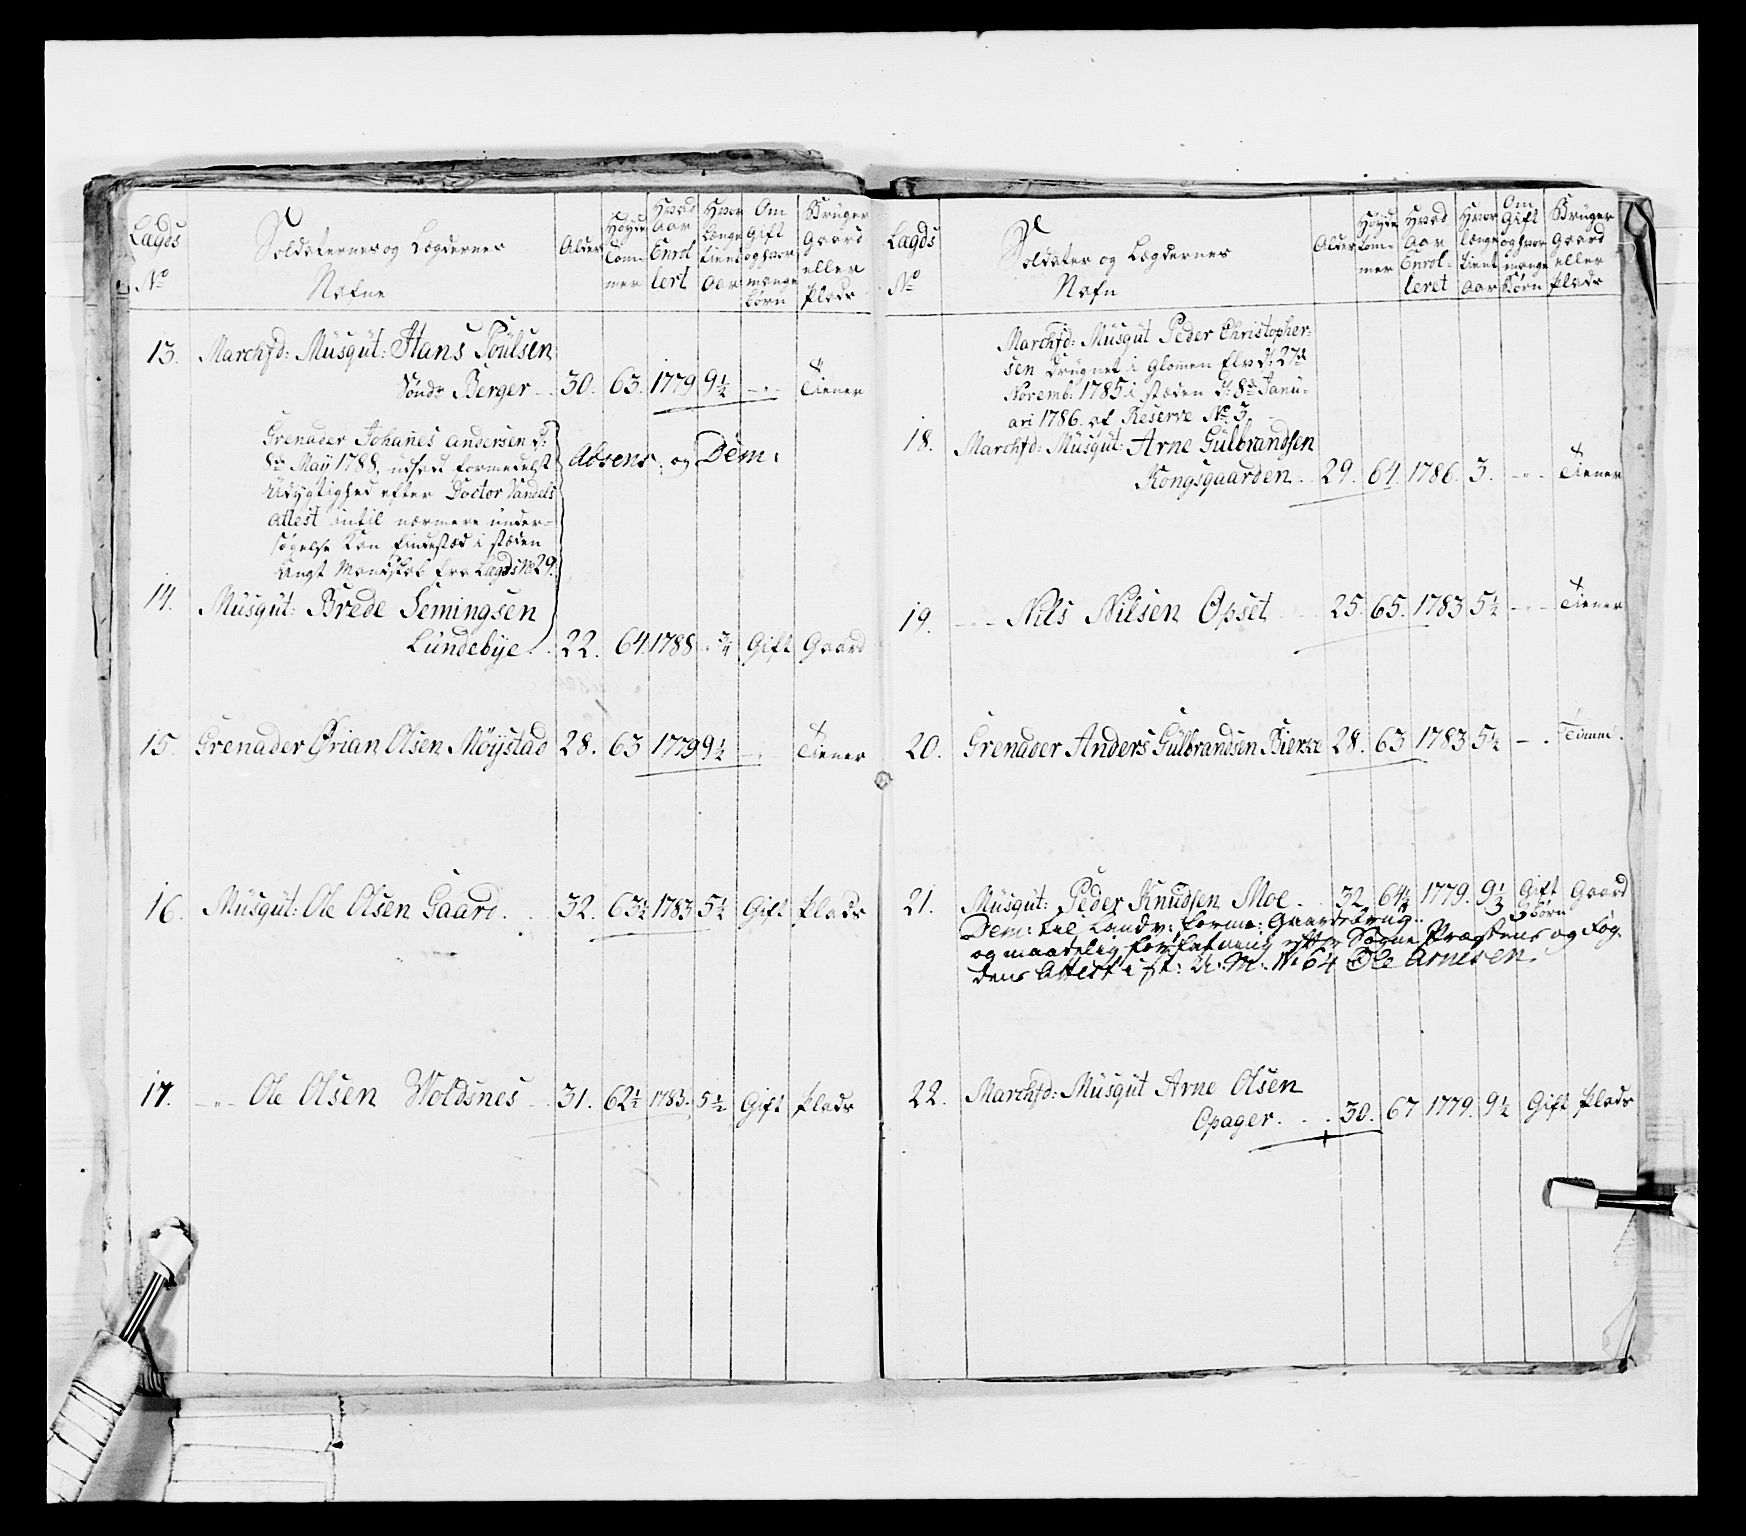 Lagds
No
Soldaternes og Lægdernes
Nafne
Alder
Høyde
Tom-
mer
Hvad
Aar
Enrol
lert
Hvor
Længe
tient
Aar
Om
Gift
og hvor
mange
børn
Bruger
Gaard
eller
Plads
13. Marchfd: Musqut: Hans Poulsen
Sønd: Berger 30. 63. 1779 9½ -"- Tiener
Grenader Johanes Andersen d:
8de May 1788, udsat formedelst
Udygtighed efter Doctor Vandels
Attest intil nærmere under-
søgelse Kan finde sted i stæden
ungt Mandskab fra Lagds No 29.
Absens: og Dem:
14. Musqut: Brede Semingsen
Lundebye . 22. 64. 1788 ¾ Gift Gaard
15. Grenader Ørian Olsen Møystad 28. 63 1779 9½ -"- Tiener
16. Musqut: Ole Olsen Gaard. 32. 63½ 1783 5½ Gift Plads
17. -"- Ole Olsen Woldsnes 31. 62½ 1783. 5½ Gift Plads
Lagds
No
Soldater og Lægdernes
Nafn
Alder
Høyde
Tom-
mer
Hvad
Aar
Enrol-
leret
Hvor
længe
tient
Aar
Om
Gift
og hvor
mange
Børn
Bruger
Gaard
eller
Plads
Marchfd: Musqut Peder Christopher-
sen Drugnet i Glomen Elv d: 27de
Novemb: 1785 i stæden d: 8de Janu-
ari 1786. af Reserve No 3.
18. Marchfd: Musqut: Arne Gulbrandsen
Kongsgaarden . 29. 64. 1786. 3. -"- Tiener
19. -"- Nils Nilsen Opset 25. 65. 1783 5½ -"- Tiener
20. Grenader Anders Gulbrandsen Bierke 28. 63 1783 5½ - .
21. Musqut: Peder Knudsen Moe . 32. 64½ 1779. 9½ Gift Gaard
3 børn
Dem: til Landv: forme: Gaardsbrug
og maadelig forfatning efter Sogne Præstens og Fog-
dens Attest i st: U: M: No 64 Ole Arnesen.
22. Marchfd: Musqut Arne Olsen
Opager. . . 30. 67 1779. 9½ Gift Plads